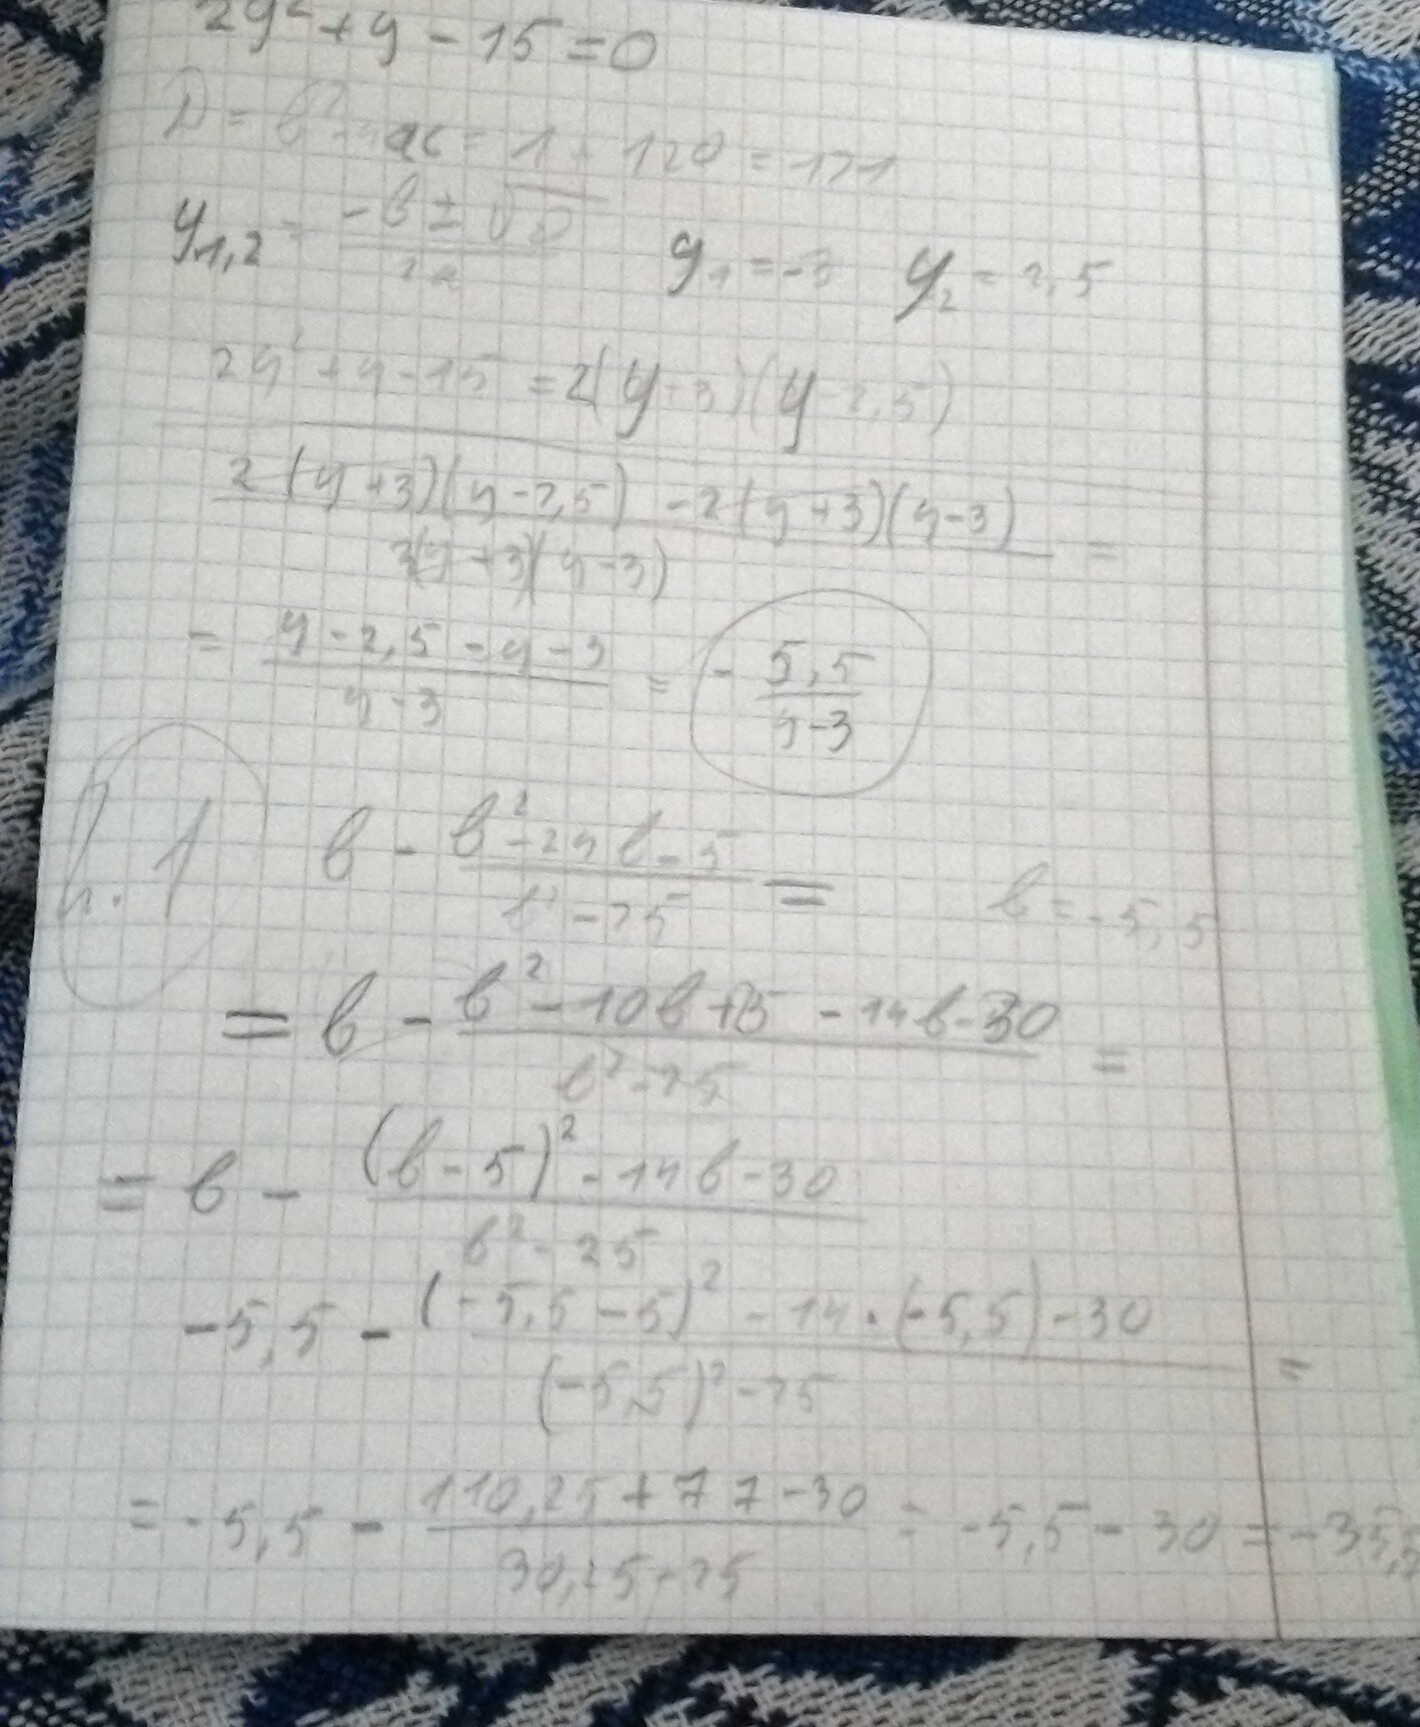 2y² + y - 15 = 0
D = b² - 4ac = 1 + 120 = 121
y₁,₂ = (-b ± √D)/2a   y₁ = -3   y₂ = 2,5
2y² + y - 15 = 2(y + 3)(y - 2,5)
(2(y + 3)(y - 2,5) - 2(y + 3)(y - 3))/(2(y + 3)(y - 3)) =
= (y - 2,5 - y - 3)/(y - 3) = - 5,5/(y - 3)
1   b - (b² - 24b - 5)/(b² - 25) =   b = -5,5
= b - (b² - 10b + 25 - 14b - 30)/(b² - 25) =
= b - ((b - 5)² - 14b - 30)/(b² - 25)
-5,5 - ((-5,5 - 5)² - 14 · (-5,5) - 30)/((-5,5)² - 25) =
= -5,5 - (110,25 + 77 - 30)/(30,25 - 25) = -5,5 - 30 = -35,